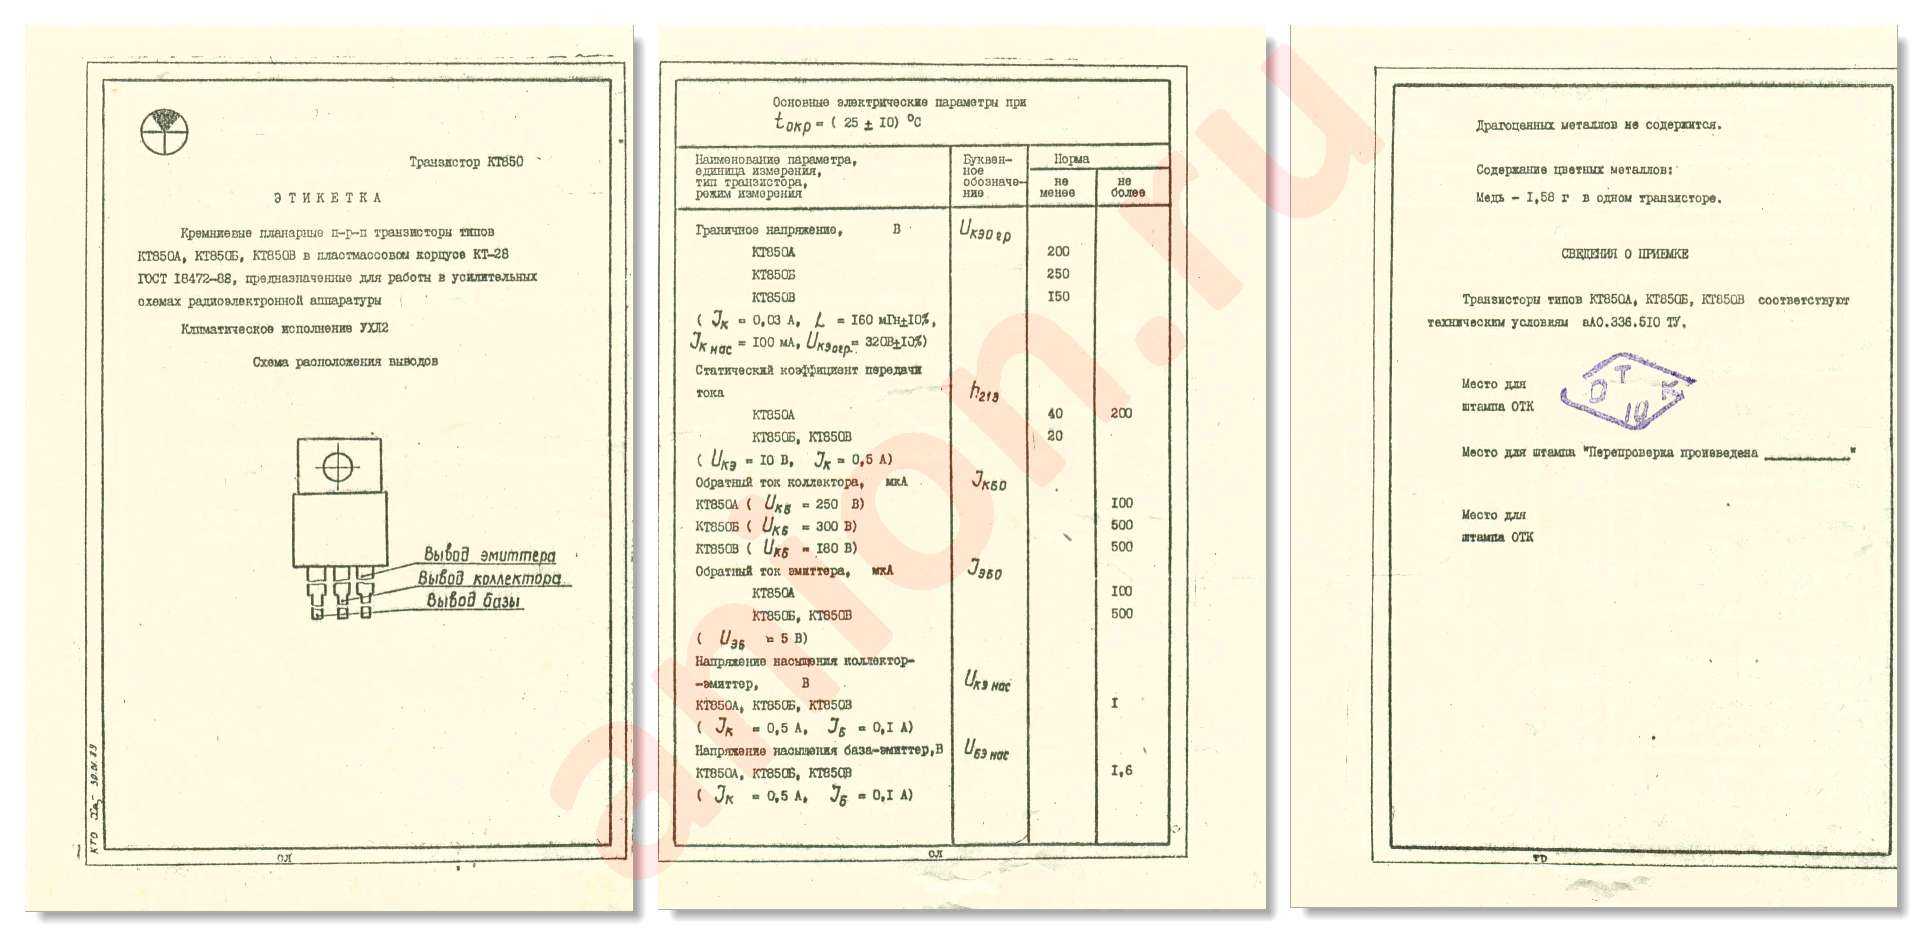 Транзистор КТ850
ЭТИКЕТКА
Кремниевые планарные п-р-п транзисторы типов
КТ850А, КТ850Б, КТ850В в пластмассовом корпусе КТ-28
ГОСТ 18472-88, предназначенные для работы в усилительных
схемах радиоэлектронной аппаратуры
Климатическое исполнение УХЛ2
Схема расположения выводов
Вывод эмиттера
Вывод коллектора
Вывод базы
ОЛ
Основные электрические параметры при
tокр = ( 25 ± 10) °С
Наименование параметра, единица измерения, тип транзистора, режим измерения
Буквен-ное обозначе-ние
Норма
не менее
не более
Граничное напряжение, В Uкэо гр
КТ850А 200
КТ850Б 250
КТ850В 150
( Iк = 0,03 А, L = 160 мГн±10%,
Iк нас = 100 мА, Uкэогр.= 320В±10%)
Статический коэффициент передачи
тока h21э
КТ850А 40 200
КТ850Б, КТ850В 20
( Uкэ = 10 В, Iк = 0,5 А)
Обратный ток коллектора, мкА Iкбо
КТ850А ( Uкб = 250 В) 100
КТ850Б ( Uкб = 300 В) 500
КТ850В ( Uкб = 180 В) 500
Обратный ток эмиттера, мкА Iэбо
КТ850А 100
КТ850Б, КТ850В 500
( Uэб = 5 В)
Напряжение насыщения коллектор-
-эмиттер, В Uкэ нас
КТ850А, КТ850Б, КТ850В 1
( Iк = 0,5 А, Iб = 0,1 А)
Напряжение насыщения база-эмиттер,В Uбэ нас
КТ850А, КТ850Б, КТ850В 1,6
( Iк = 0,5 А, Iб = 0,1 А)
ОЛ
Драгоценных металлов не содержится.
Содержание цветных металлов:
Медь - 1,58 г в одном транзисторе.
СВЕДЕНИЯ О ПРИЕМКЕ
Транзисторы типов КТ850А, КТ850Б, КТ850В соответствуют
техническим условиям аА0.336.510 ТУ.
Место для
штампа ОТК
ОТК
10
Место для штампа "Перепроверка произведена "
Место для
штампа ОТК
TD
amion.ru